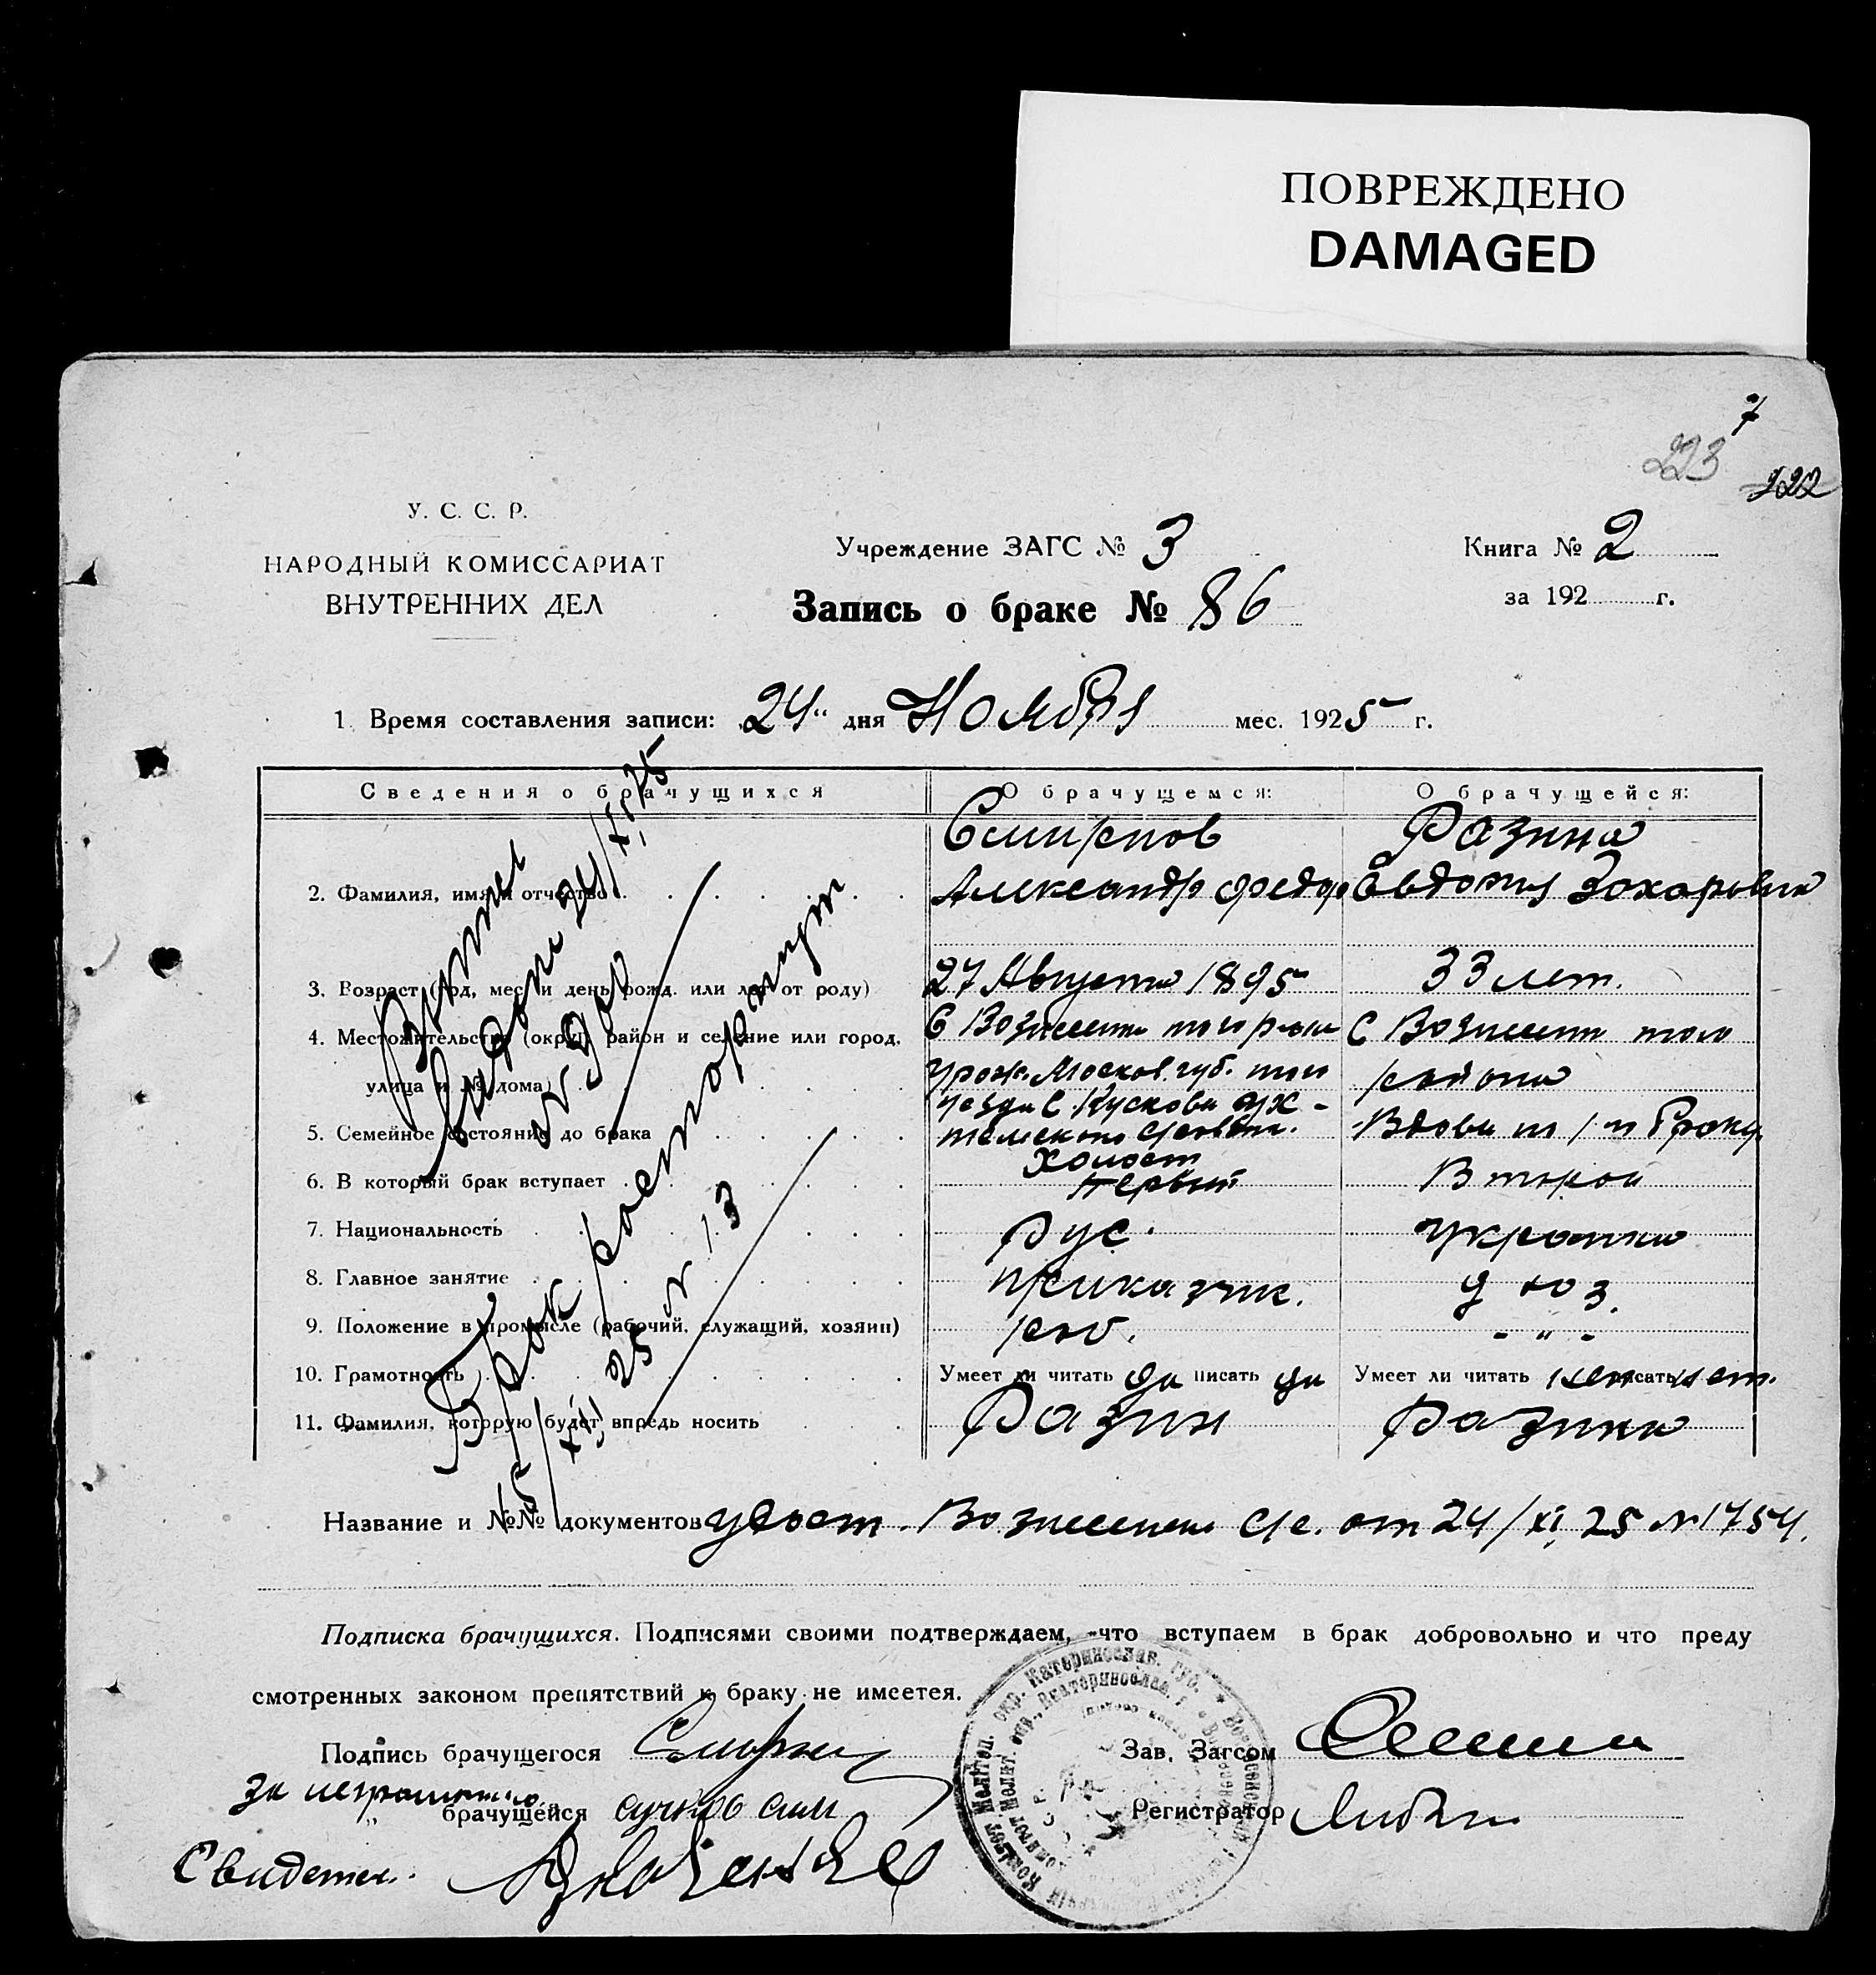 ПОВРЕЖДЕНО
DAMAGED
7
223
222
У. С. С. Р.
НАРОДНЫЙ КОМИССАРИАТ
ВНУТРЕННИХ ДЕЛ
Учреждение ЗАГС № 3
Запись о браке № 86
Книга № 2
за 192 г.
1. Время составления записи: „24“ дня Ноября мес. 1925 г.
Сведения о брачущихся О брачущемся: О брачущейся:
Смирнов Разина
2. Фамилия, имя и отчество Александр Федор Евдокия Захаровна
3. Возраст (год, мес. и день рожд. или лет от роду) 27 Августа 1895 33 лет.
4. Местожительство (округ, район и селение или город, С Вознесенк того р-на С Вознесенк того
улица и № дома) урож. Москов. губ. того района
уезда С. Кускова
5. Семейное состояние до брака Холост Вдова по 1-м браку
6. В который брак вступает первый Второй
7. Национальность Рус. украинка
8. Главное занятие приказчик. дхоз.
9. Положение в промысле (рабочий, служащий, хозяин) раб. - " -
10. Грамотность Умеет ли читать да писать да Умеет ли читать нет писать нет.
11. Фамилия, которую будет впредь носить Разин Разина
24/XI 25
Брак расторгнут
15/XII 25 N 13
Название и №№ документов удост. Вознесенск с/с. от 24/XI 25 N 1754.
Подписка брачущихся. Подписями своими подтверждаем, что вступаем в брак добровольно и что преду
смотренных законом препятствий к браку не имеется.
Подпись брачущегося Смирнов Зав. Загсом
за неграмотную
„ брачущейся Регистратор
Свидетел.